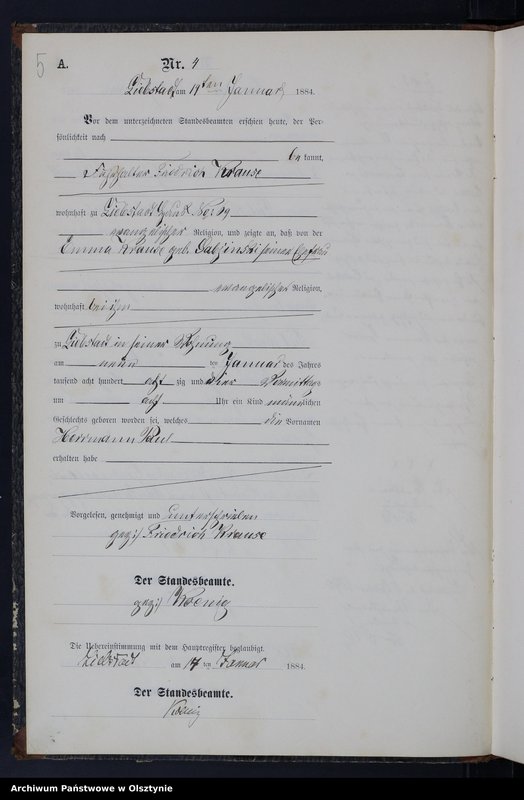 5
A.
Nr. 4
Liebstadt am 14ten Januar 1884.
Vor dem unterzeichneten Standesbeamten erschien heute, der Per-
sönlichkeit nach
be kannt,
Friedrich Krause
wohnhaft zu Liebstadt
evangelischer Religion, und zeigte an, daß von der
Emma Krause geb. seiner Ehefrau
evangelischer Religion,
wohnhaft bei ihm
zu Liebstadt in seiner Wohnung
am neun ten Januar des Jahres
tausend acht hundert acht zig und vier Vormittags
um acht Uhr ein Kind männlichen
Geschlechts geboren worden sei, welches die Vornamen
Herrmann Paul
erhalten habe
Vorgelesen, genehmigt und unterschrieben
gez:) Friedrich Krause
Der Standesbeamte.
gez:) Koenig
Die Uebereinstimmung mit dem Hauptregister beglaubigt.
Liebstadt am 14 ten Januar 1884.
Der Standesbeamte.
Koenig
Archiwum Państwowe w Olsztynie